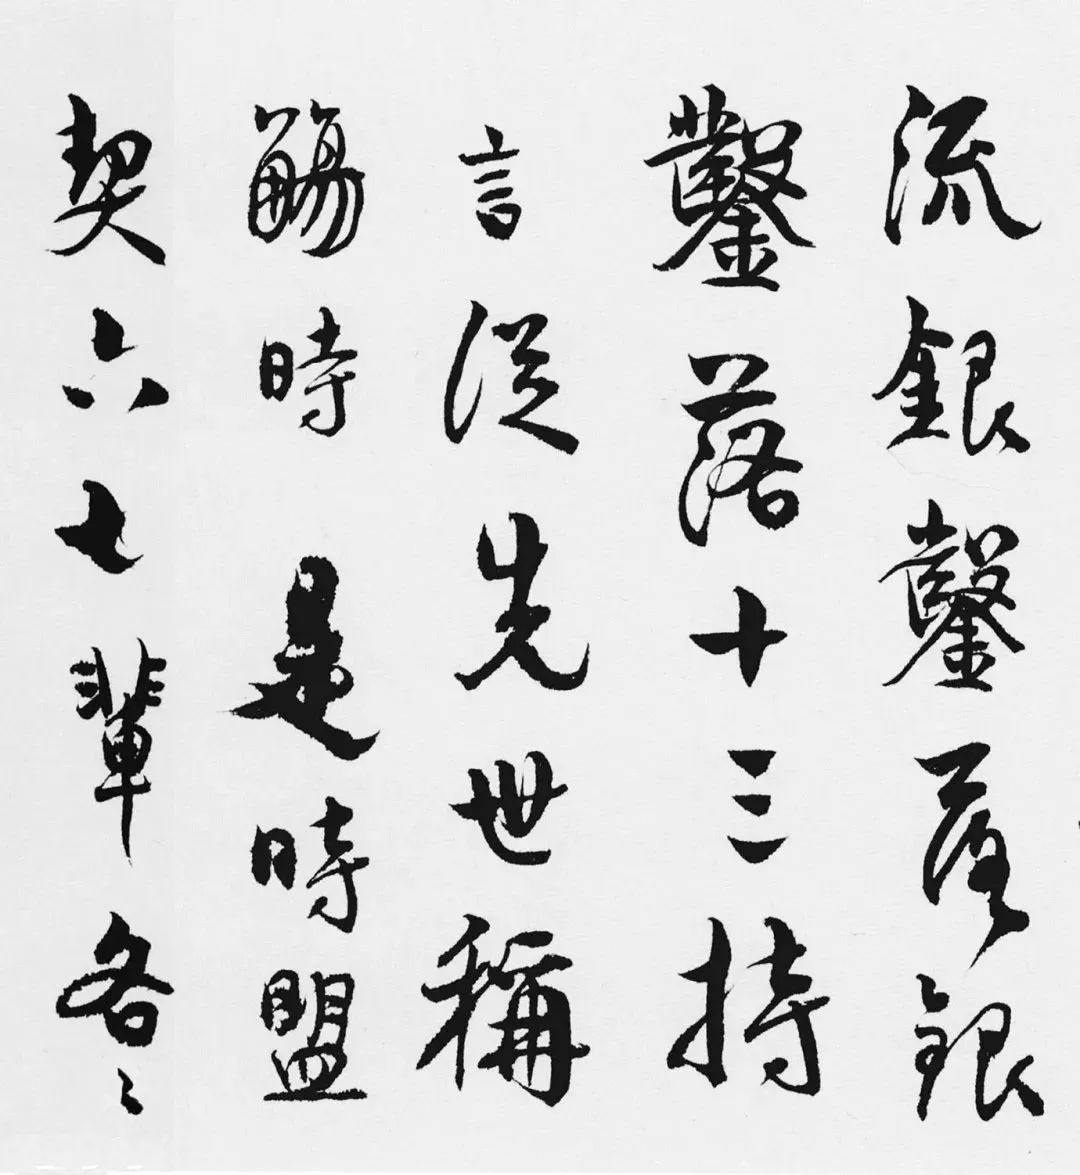 流銀鑿落銀
鑿落十三持
言從先世稱
觴時是時盟
契六七輩各〻